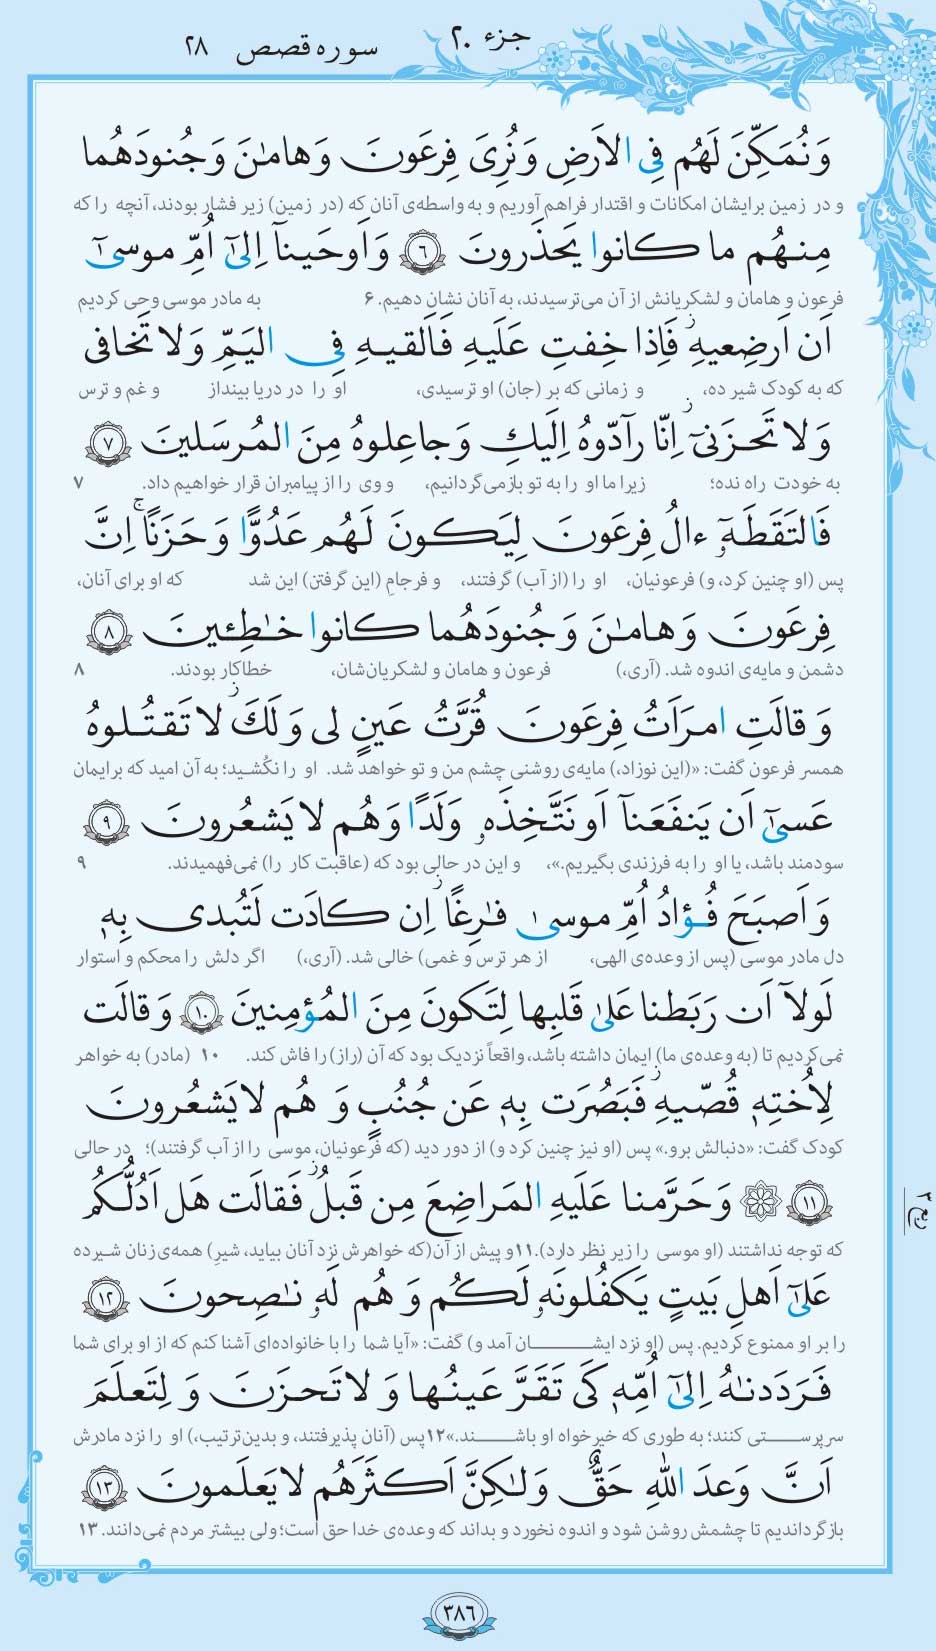 جزء ۲۰
سوره قصص ۲۸
وَ نُمَكِّنَ لَهُم فِی الاَرضِ وَ نُرِیَ فِرعَونَ وَ هامٰنَ وَ جُنودَهُما
و در زمین برایشان امکانات و اقتدار فراهم آوریم و به واسطه‌ی آنان که (در زمین) زیر فشار بودند، آنچه را که
مِنهُم ما کانوا یَحذَرونَ ﴿٦﴾ وَ اَوحَینآ اِلیٰٓ اُمِّ موسیٰٓ
فرعون و هامان و لشکریانش از آن می‌ترسیدند، به آنان نشان دهیم. ۶ به مادر موسی وحی کردیم
اَن اَرضِعیهِ ز فَاِذا خِفتِ عَلَیهِ فَاَلقیهِ فِی الیَمِّ وَ لا تَخافی
که به کودک شیر ده، و زمانی که بر (جان) او ترسیدی، او را در دریا بینداز و غم و ترس
وَ لا تَحزَنیٓ ز اِنّا رآدّوهُ اِلَیكِ وَ جاعِلوهُ مِنَ المُرسَلینَ ﴿٧﴾
به خودت راه نده؛ زیرا ما او را به تو بازمی‌گردانیم، و وی را از پیامبران قرار خواهیم داد. ۷
فَالتَقَطَهٓ ءالُ فِرعَونَ لِیَکونَ لَهُم عَدُوًّا وَ حَزَنًا ۚ اِنَّ
پس (او چنین کرد، و) فرعونیان، او را (از آب) گرفتند، و فرجامِ (این گرفتن) این شد که او برای آنان،
فِرعَونَ وَ هامٰنَ وَ جُنودَهُما کانوا خٰطِئینَ ﴿٨﴾
دشمن و مایه‌ی اندوه شد. (آری،) فرعون و هامان و لشکریان‌شان، خطاکار بودند. ۸
وَ قالَتِ امرَاَتُ فِرعَونَ قُرَّتُ عَینٍ لی وَ لَكَ ز لا تَقتُلوهُ
همسر فرعون گفت: «(این نوزاد،) مایه‌ی روشنی چشم من و تو خواهد شد. او را نکُشید؛ به آن امید که برایمان
عَسیٰٓ اَن یَنفَعَنآ اَو نَتَّخِذَهٗ وَلَدًا وَ هُم لا یَشعُرونَ ﴿٩﴾
سودمند باشد، یا او را به فرزندی بگیریم.»، و این در حالی بود که (عاقبت کار را) نمی‌فهمیدند. ۹
وَ اَصبَحَ فُؤادُ اُمِّ موسیٰ فٰرِغًا ز اِن کادَت لَتُبدی بِهٖ
دل مادر موسی (پس از وعده‌ی الهی، از هر ترس و غمی) خالی شد. (آری،) اگر دلش را محکم و استوار
لَولآ اَن رَبَطنا عَلیٰ قَلبِها لِتَکونَ مِنَ المُؤمِنینَ ﴿١٠﴾ وَ قالَت
نمی‌کردیم تا (به وعده‌ی ما) ایمان داشته باشد، واقعاً نزدیک بود که آن (راز) را فاش کند. ۱۰ (مادر) به خواهر
لِاُختِهٖ قُصّیهِ ز فَبَصُرَت بِهٖ عَن جُنُبٍ وَ هُم لا یَشعُرونَ
کودک گفت: «دنبالش برو.» پس (او نیز چنین کرد و) از دور دید (که فرعونیان، موسی را از آب گرفتند)؛ در حالی
﴿١١﴾ وَ حَرَّمنا عَلَیهِ المَراضِعَ مِن قَبلُ ز فَقالَت هَل اَدُلُّكُم
که توجه نداشتند (او موسی را زیر نظر دارد). ۱۱ و پیش از آن (که خواهرش نزد آنان بیاید، شیرِ) همه‌ی زنان شیرده
عَلیٰٓ اَهلِ بَیتٍ یَکفُلونَهٗ لَکُم وَ هُم لَهٗ نٰصِحونَ ﴿١٢﴾
را بر او ممنوع کردیم. پس (او نزد ایشان آمد و) گفت: «آیا شما را با خانواده‌ای آشنا کنم که از او برای شما
فَرَدَدنٰهُ اِلیٰٓ اُمِّهٖ کَی تَقَرَّ عَینُها وَ لا تَحزَنَ وَ لِتَعلَمَ
سرپرستی کنند؛ به طوری که خیرخواه او باشند.» ۱۲ پس (آنان پذیرفتند، و بدین‌ترتیب،) او را نزد مادرش
اَنَّ وَعدَ اللهِ حَقٌّ وَ لٰکِنَّ اَکثَرَهُم لا یَعلَمونَ ﴿١٣﴾
بازگرداندیم تا چشمش روشن شود و اندوه نخورد و بداند که وعده‌ی خدا حق است؛ ولی بیشتر مردم نمی‌دانند. ۱۳
ربع ۳
۳۸۶